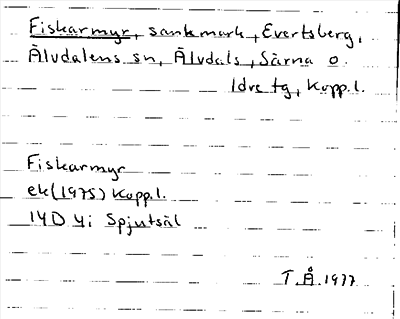 Fiskarmyr, sankmark, Evertsberg,
Älvdalens sn, Älvdals, Särna o.
Idre tg, Kopp.l.
Fiskarmyr
ek(1975) Kopp.l.
14D 4i Spjutsäl
T.Å.1977